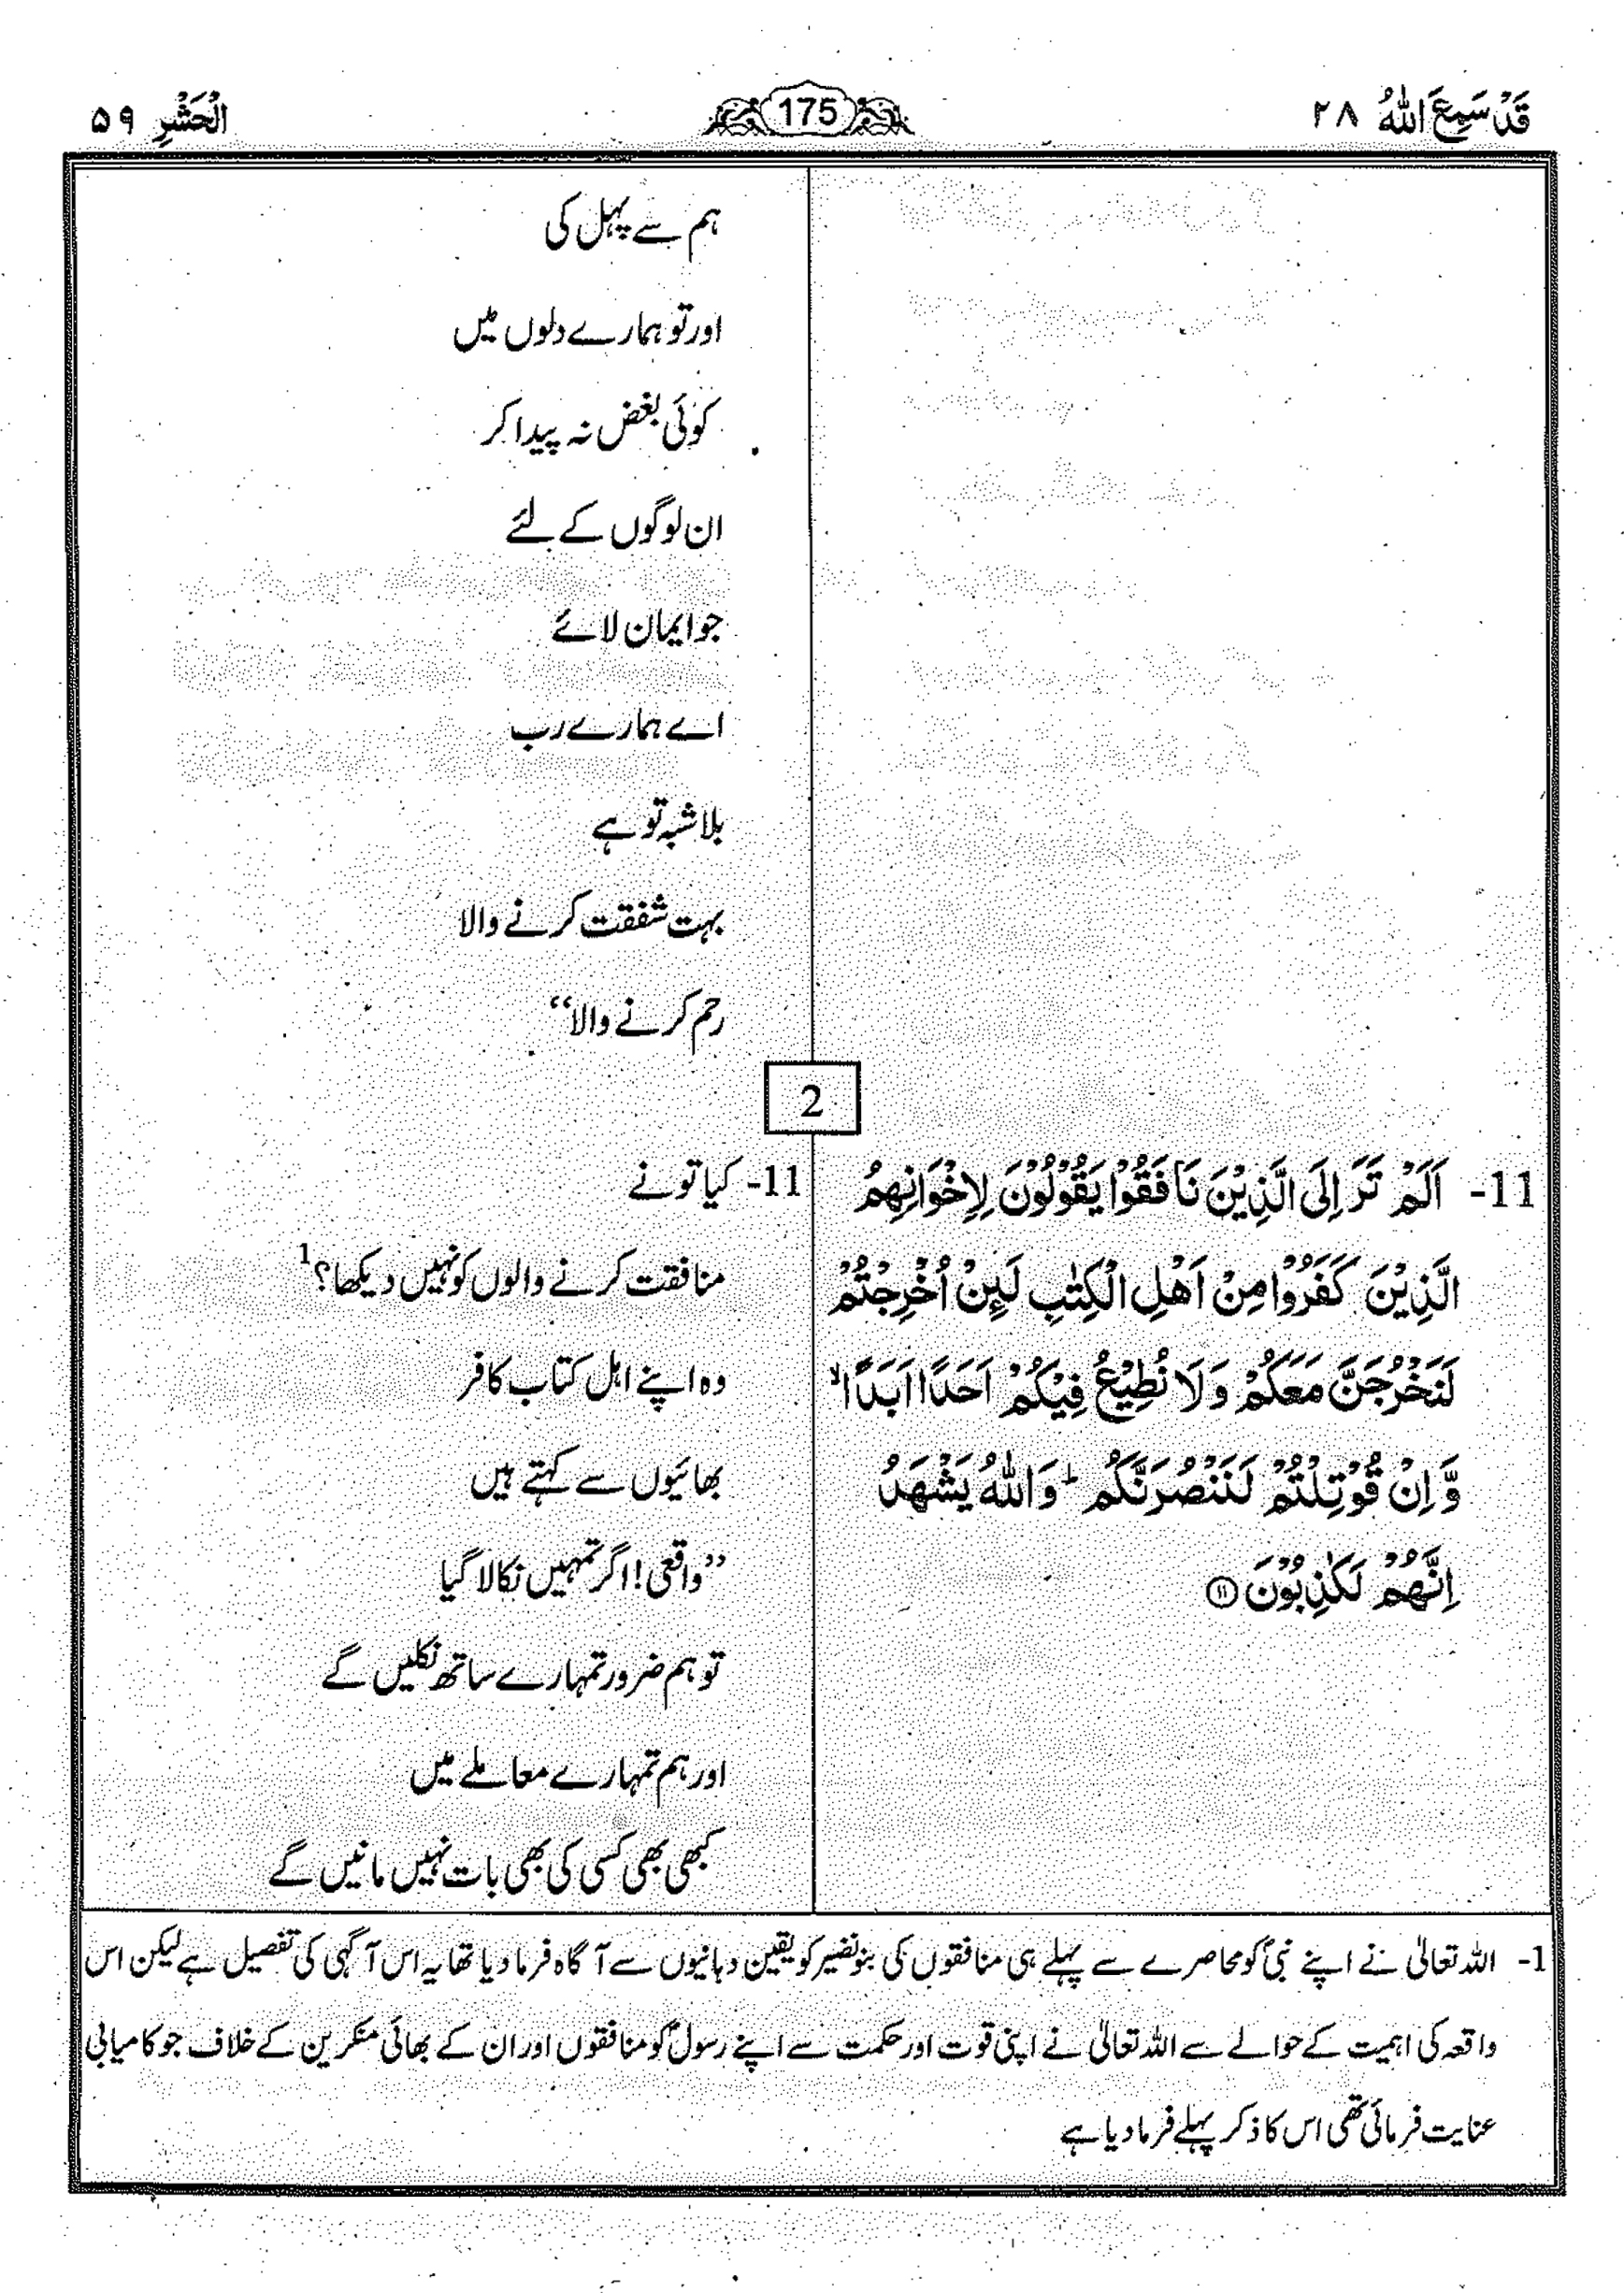 قَدْ سَمِعَ اللّٰهُ ٢٨
175
الْحَشْرِ ٥٩
ہم سے پہل کی
اور تو ہمارے دلوں میں
کوئی بغض نہ پیدا کر
ان لوگوں کے لئے
جو ایمان لائے
اے ہمارے رب
بلا شبہ تو ہے
بہت شفقت کرنے والا
رحم کرنے والا‘‘
2
11- اَلَمْ تَرَ اِلَى الَّذِيْنَ نَافَقُوْا يَقُوْلُوْنَ لِاِخْوَانِهِمُ
الَّذِيْنَ كَفَرُوْا مِنْ اَهْلِ الْكِتٰبِ لَىِٕنْ اُخْرِجْتُمْ
لَنَخْرُجَنَّ مَعَكُمْ وَلَا نُطِيْعُ فِيْكُمْ اَحَدًا اَبَدًا ۙ
وَّ اِنْ قُوْتِلْتُمْ لَنَنْصُرَنَّكُمْ ؕ وَاللّٰهُ يَشْهَدُ
اِنَّهُمْ لَكٰذِبُوْنَ ⑪
11- کیا تو نے
منافقت کرنے والوں کو نہیں دیکھا؟1
وہ اپنے اہل کتاب کافر
بھائیوں سے کہتے ہیں
’’واقعی! اگر تمہیں نکالا گیا
تو ہم ضرور تمہارے ساتھ نکلیں گے
اور ہم تمہارے معاملے میں
کبھی بھی کسی کی بھی بات نہیں مانیں گے
1- اللہ تعالیٰ نے اپنے نبیؐ کو محاصرے سے پہلے ہی منافقوں کی بنو نضیر کو یقین دہانیوں سے آگاہ فرما دیا تھا یہ اس آگہی کی تفصیل ہے لیکن اس
واقعہ کی اہمیت کے حوالے سے اللہ تعالیٰ نے اپنی قوت اور حکمت سے اپنے رسولؐ کو منافقوں اور ان کے بھائی منکرین کے خلاف جو کامیابی
عنایت فرمائی تھی اس کا ذکر پہلے فرما دیا ہے